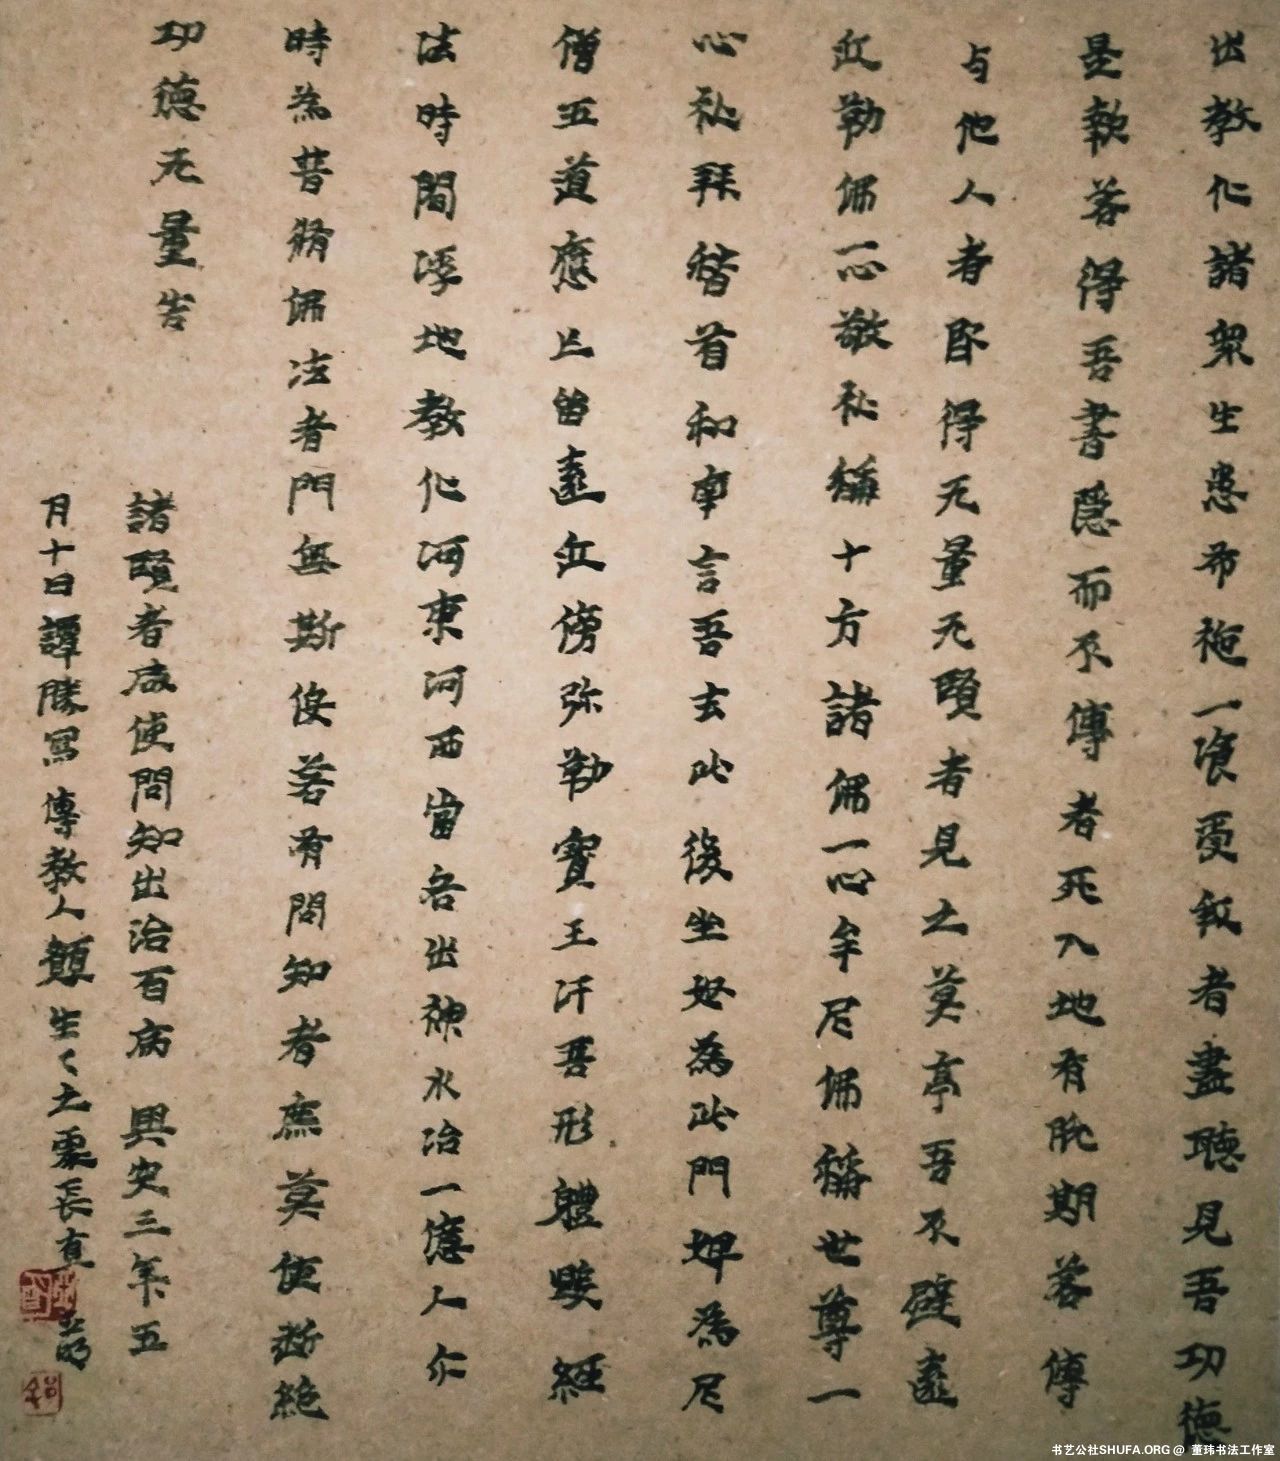 出教化諸眾生愚布袍一飡受取者盡聽見吾功德
是穀若得吾書隱而不傳者死入地有脫期若傳
与他人者臥得无量无賢者見之莫亭吾不避遠
近勒佛一心敬礼稱十方諸佛一心牟尼佛稱世尊一
心礼拜稽首和南言吾去此後坐怒為此門婢為尼
僧五道應亡皆遠近傍弥勒寶王汗吾形體晙經
法時間浮地教化河東河西當吾出神水治一億人尓
時為普脩佛法者門無斯侫若有問知者庶莫使断絶
功德无量告
諸賢者咸使問知出治百病 興安三年五
月十日譚勝寫傳教人顔生〻之 票長直
書艺公社SHUFA.ORG @ 董玮书法工作室